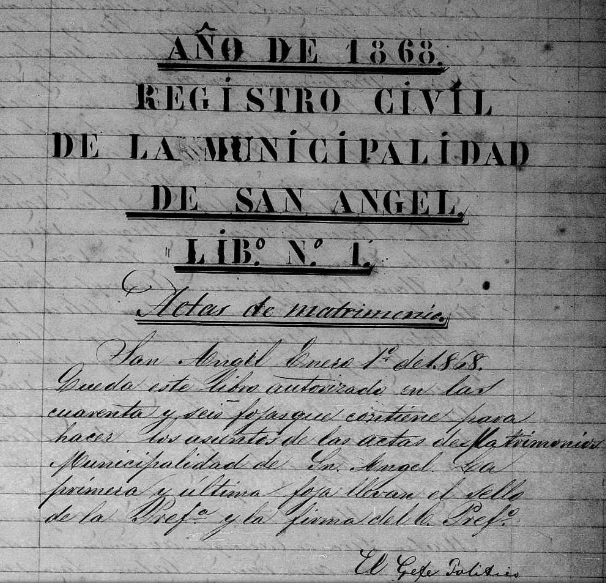 AÑO DE 1868.
REGISTRO CIVIL
DE LA MUNICIPALIDAD
DE SAN ANGEL.
LIB.º N.º 1.
Actas de matrimonio.
San Angel Enero 1º de 1.868.
Queda este libro autorizado en las
cuarenta y seis fojas que contiene para
hacer los asientos de las actas de Matrimonios
Municipalidad de Sn. Angel La
primera y última foja llevan el sello
de la Prefª y la firma del C. Prefº
El Gefe Politico